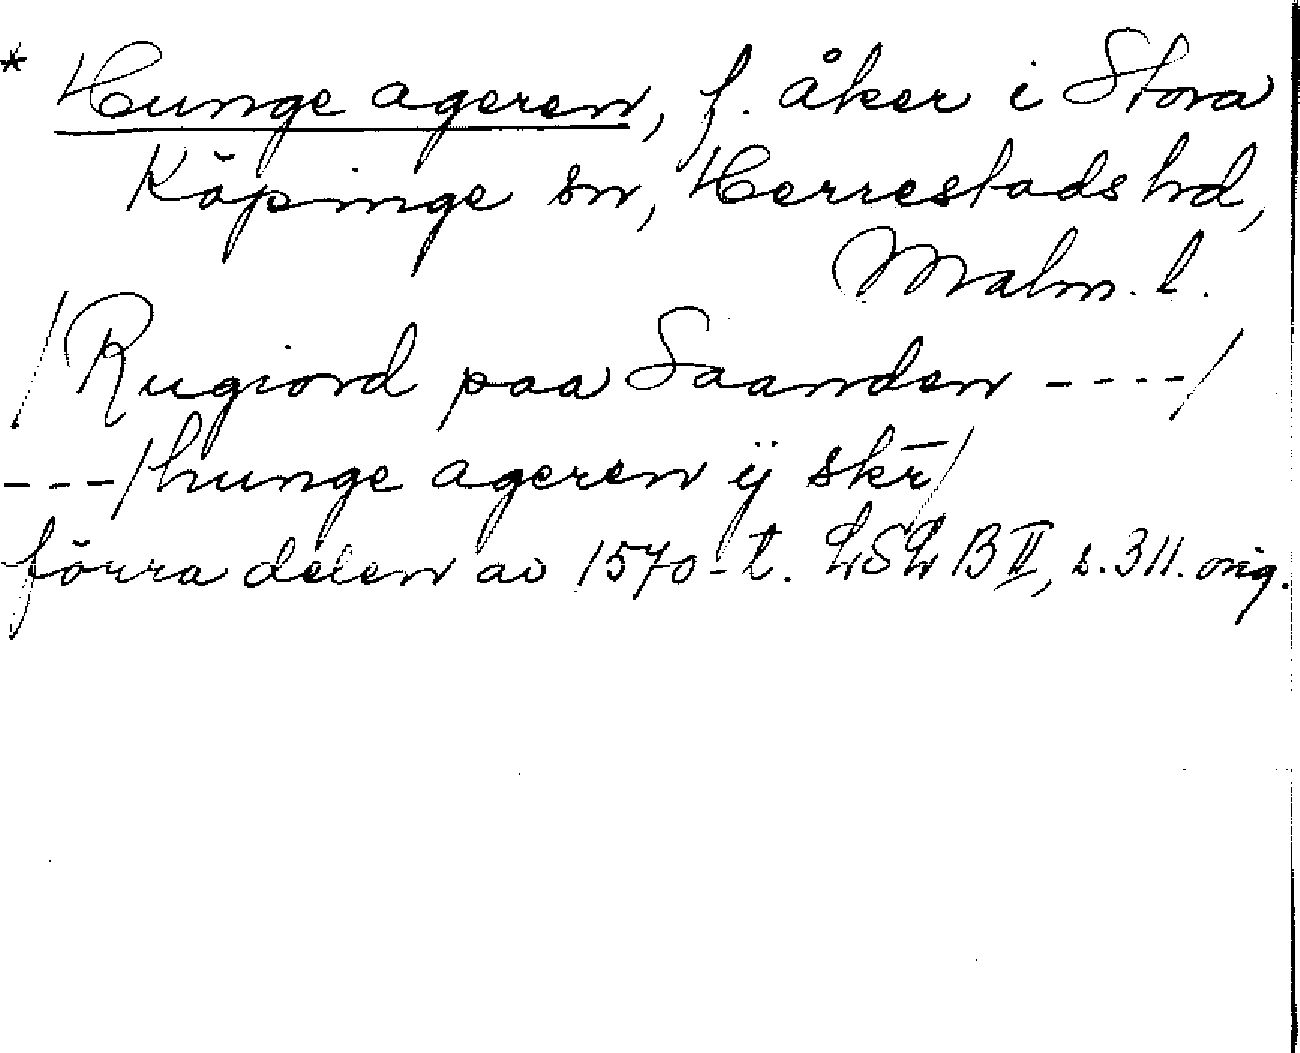 * Hunge ageren, f. åker i Stora
Köpinge sn, Herrestads hd,
Malm. l.
/Rugiord paa Saanden ----/
---/hunge ageren ÿ skr̄/
förra delen av 1570-t. LSL B II, s. 311. orig.